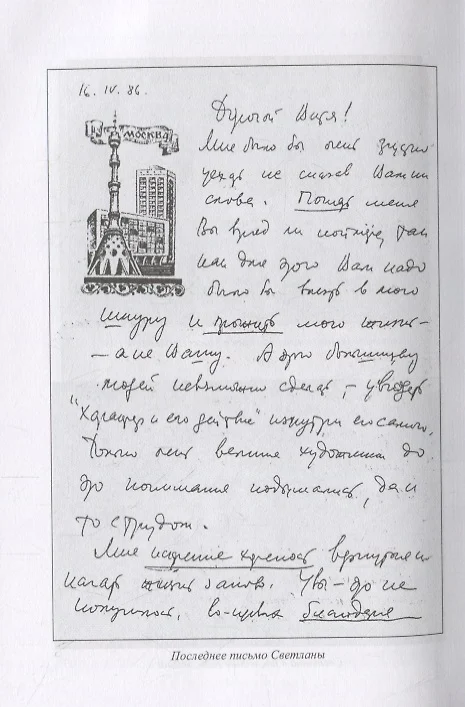 16. IV. 86.
МОСКВА
Дорогой Витя!
Мне было бы очень трудно
уехать не сказав Вам ни
слова. Понять меня
Вы вряд ли сможете, так
как для этого Вам надо
было бы влезть в мою
шкуру и прожить мою жизнь –
– а не Вашу. А это большинству
людей невозможно сделать, – увидеть
"характер и его действие" изнутри его самого,
Только очень великие художники до
это понимания подымались, да и
то с трудом.
Мне искренне хотелось вернуться и
начать жизнь заново. Увы – это не
получилось, во-первых благодаря
Последнее письмо Светланы